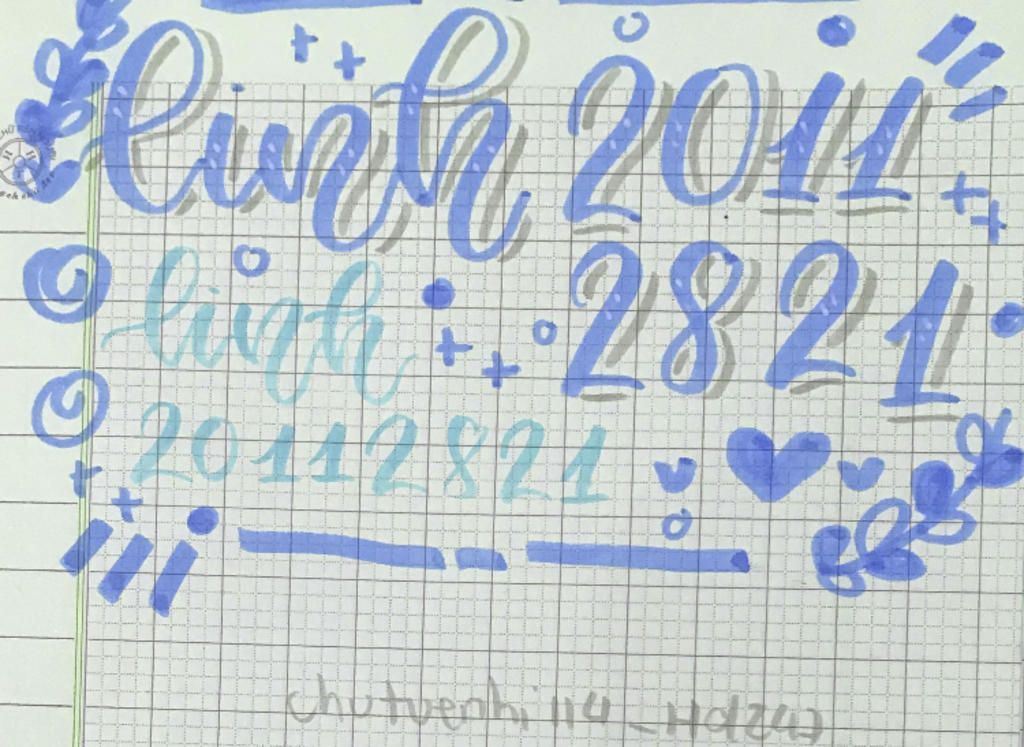 linh 2011
2821
linh
20112821
chutuenhi 114_Hd247